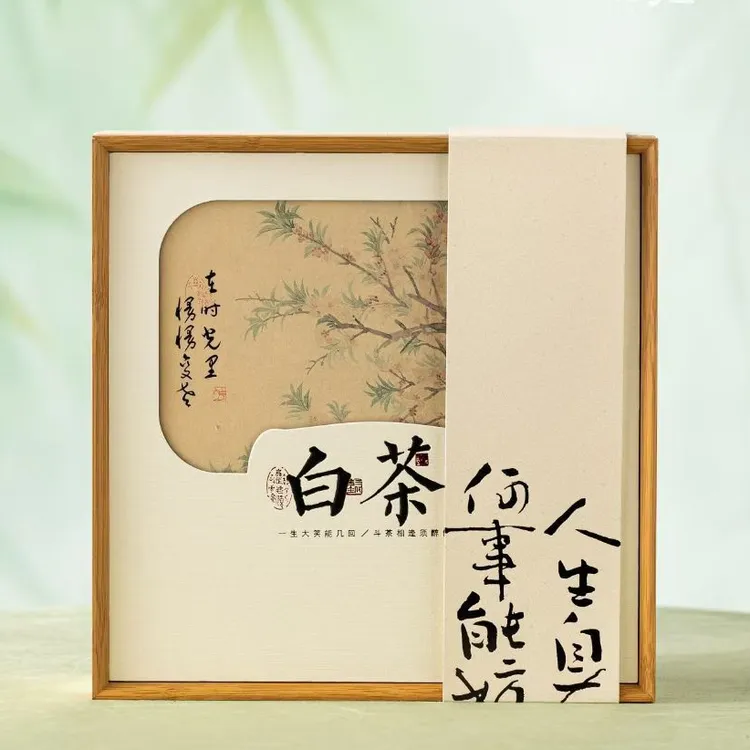 在时光里
慢慢变老
白茶
一生大笑能几回／斗茶相逢须醉
人生自
何事能